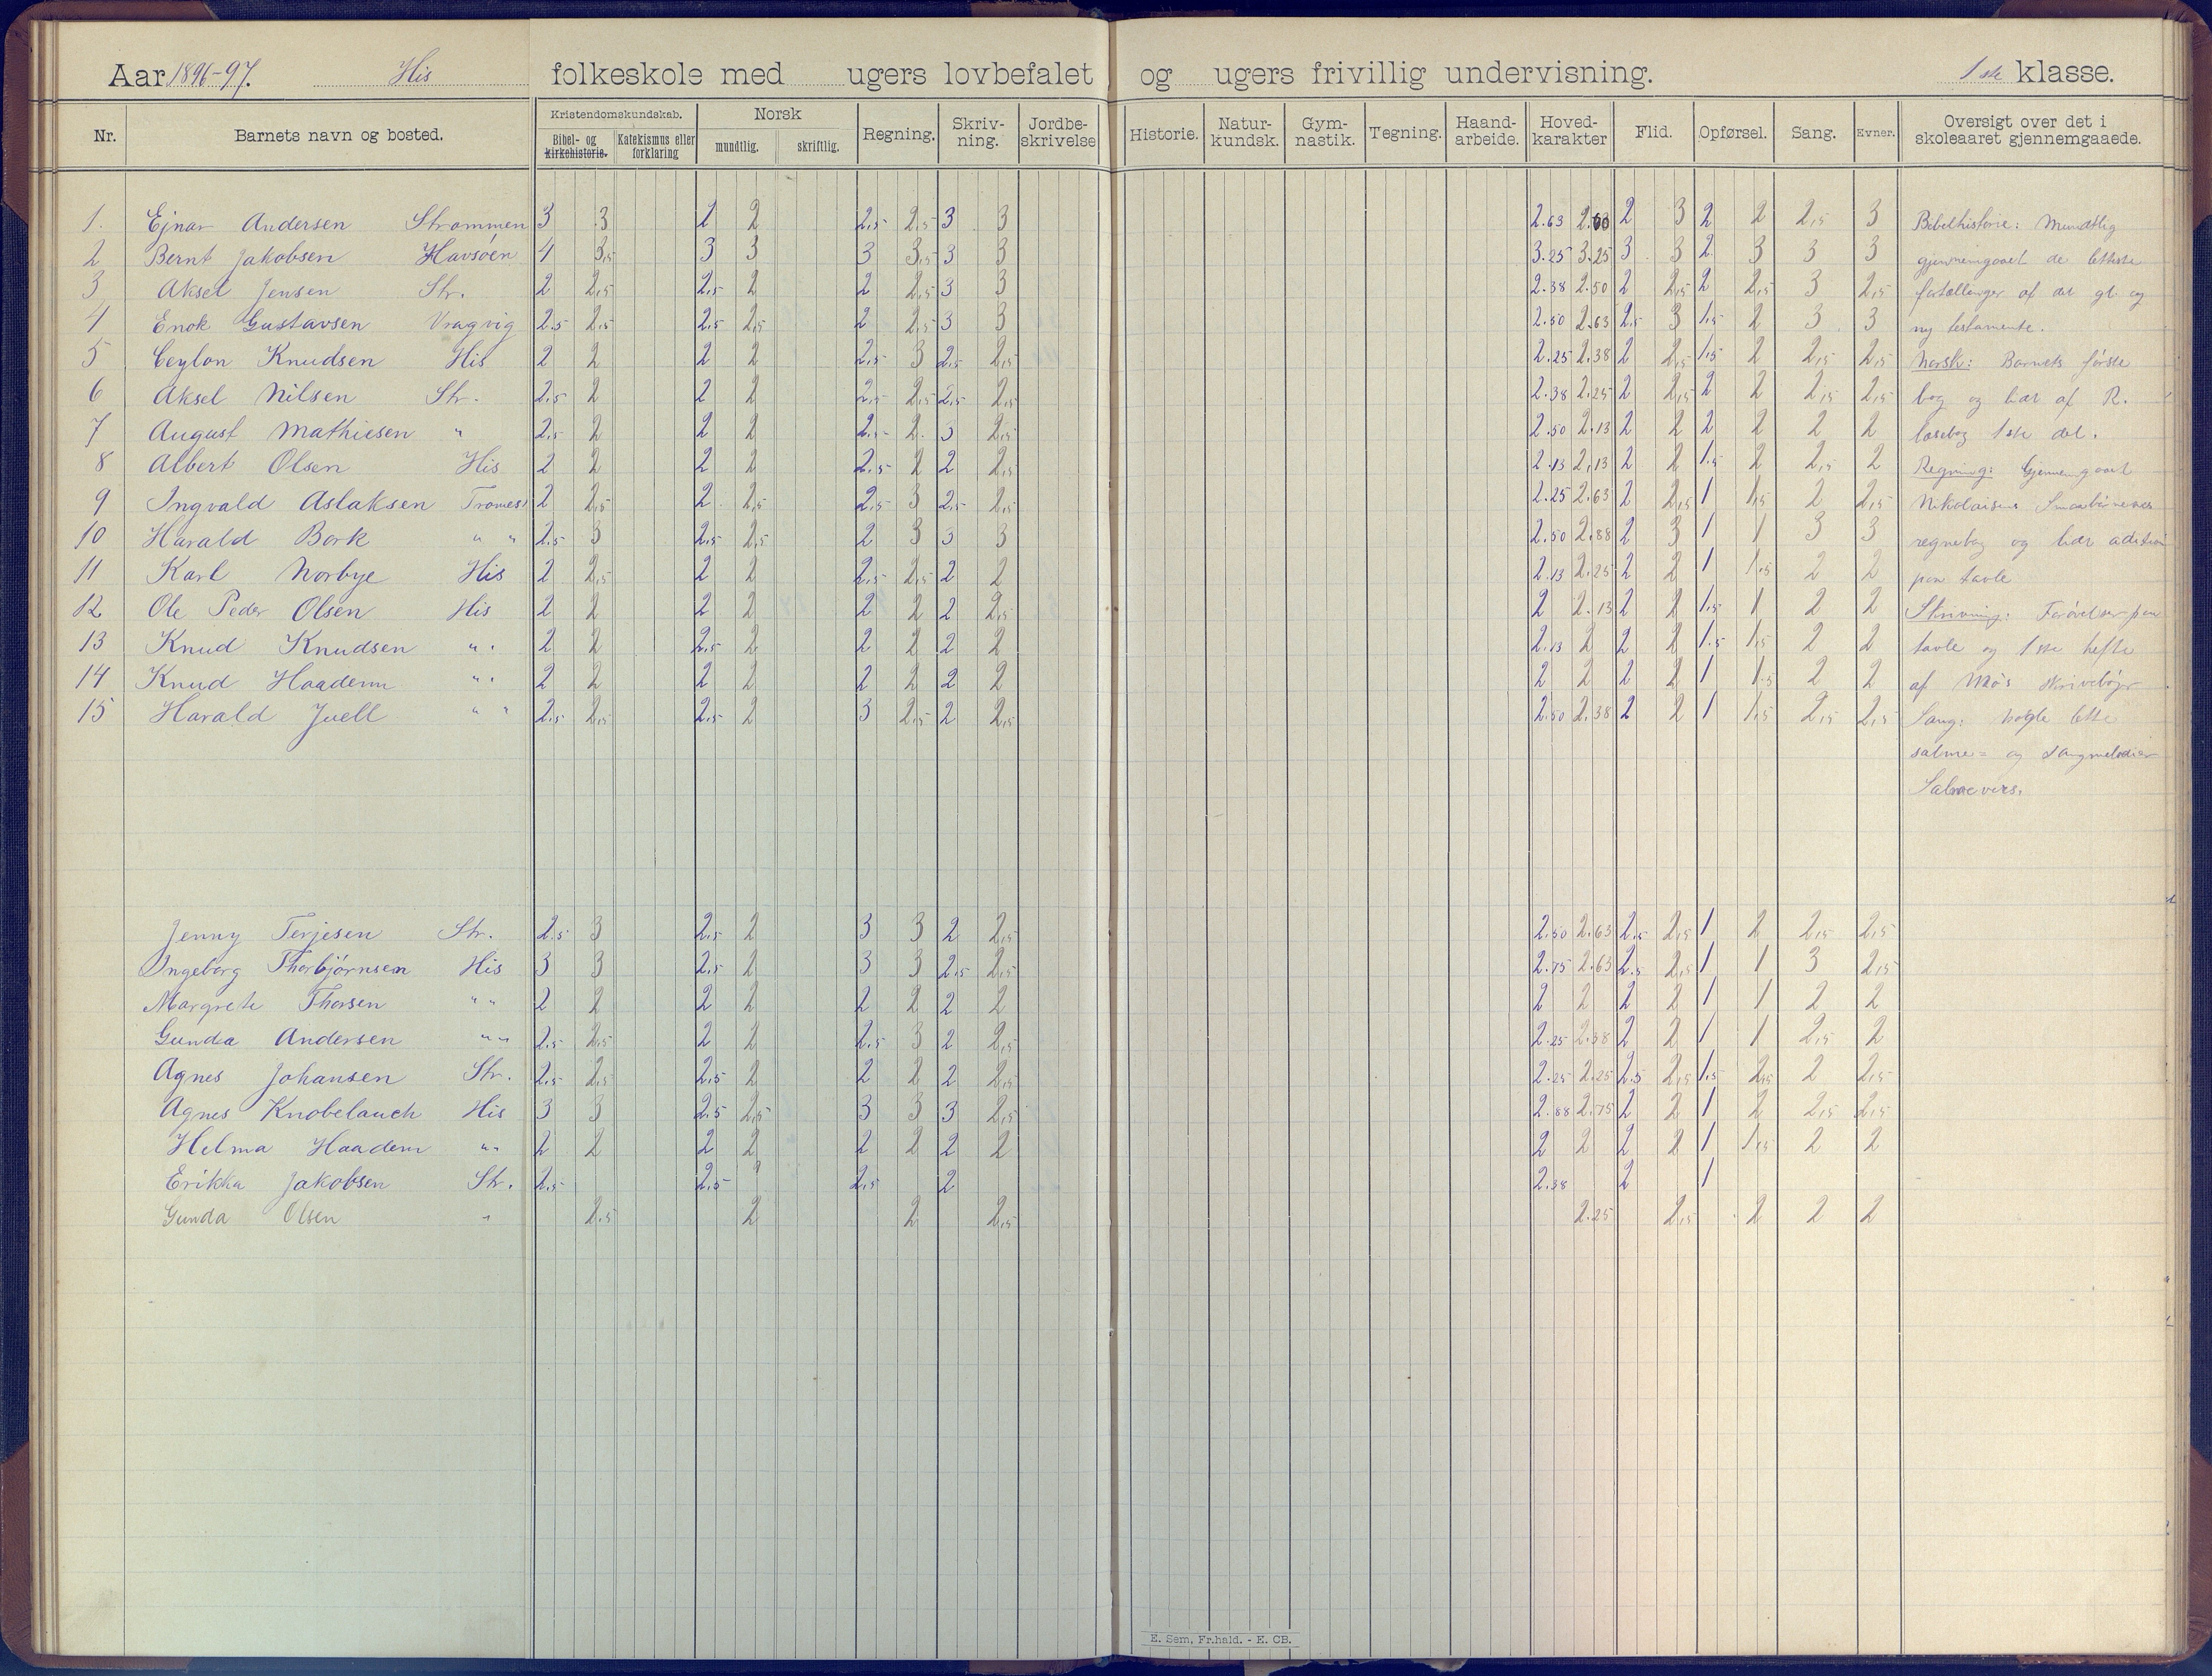 Aar 1896-97. His folkeskole med ugers lovbefalet og ugers frivillig undervisning. 1ste klasse.
Nr. Barnets navn og bosted. Kristendomskundskab. Bibel- og kirkehistorie. Katekismus eller forklaring Norsk mundtlig. skriftlig. Regning. Skriv-ning. Jordbe-skrivelse Historie. Natur-kundsk. Gym-nastik. Tegning. Haand-arbeide. Hoved-karakter Flid. Opførsel. Sang. Evner. Oversigt over det i skoleaaret gjennemgaaede.
1. Ejnar Andersen Strømmen 3 3 2 2 2,5 2,5 3 3 2.63 2 3 2 2 2,5 3 Bibelhistorie: Mundtlig
2 Bernt Jakobsen Havsøen 4 3,5 3 3 3 3,5 3 3 3.25 3.25 3 3 2 3 3 3 gjennemgaaet de letteste
3 Aksel Jensen Str. 2 2,5 2,5 2 2 2,5 3 3 2.38 2.50 2 2,5 2 2,5 3 2,5 fortællinger af det gl. og
4 Enok Gustavsen Vragvig 2.5 2,5 2,5 2,5 2 2,5 3 3 2.50 2.63 2.5 3 1.5 2 3 3 ny testamente.
5 Ceylon Knudsen His 2 2 2 2 2,5 3 2,5 2,5 2.25 2.38 2 2,5 1.5 2 2,5 2,5 Norsk: Barnets første
6 Aksel Nilsen Str. 2,5 2 2 2 2,5 2,5 2,5 2,5 2.38 2.25 2 2,5 2 2 2,5 2,5 bog og lidt af R.
7 August Mathiesen " 2,5 2 2 2 2,5 2 3 2,5 2.50 2.13 2 2 2 2 2 2 læsebog 1ste del.
8 Albert Olsen His 2 2 2 2 2.5 2 2 2,5 2.13 2,13 2 2 1.5 2 2,5 2 Regning: Gjennemgaaet
9 Ingvald Aslaksen Tromøs 2 2,5 2 2,5 2,5 3 2,5 2,5 2.25 2.63 2 2,5 1 1,5 2 2,5 Nikolaisens Smaabørnenes
10 Harald Bork " " 2.5 3 2,5 2,5 2 3 3 3 2.50 2.88 2 3 1 1 3 3 regnebog og lidt adition
11 Karl Norbye His 2 2,5 2 2 2,5 2,5 2 2 2.13 2.25 2 2 1 1.5 2 2 paa tavle
12 Ole Peder Olsen His 2 2 2 2 2 2 2 2,5 2 2.13 2 2 1.5 1 2 2 Skrivning: Forøvelser paa
13 Knud Knudsen " " 2 2 2.5 2 2 2 2 2 2.13 2 2 2 1.5 1,5 2 2 tavle og 1ste hefte
14 Knud Haadem " " 2 2 2 2 2 2 2 2 2 2 2 2 1 1.5 2 2 af Møs skrivebøger
15 Harald Juell " " 2.5 2,5 2.5 2 3 2,5 2 2,5 2.50 2.38 2 2 1 1.5 2,5 2,5 Sang: Nogle lette
salme- og sangmelodier
Salmevers.
Jenny Terjesen Str. 2.5 3 2,5 2 3 3 2 2,5 2.50 2.63 2.5 2,5 1 2 2,5 2,5
Ingeborg Thorbjørnsen His 3 3 2.5 2 3 3 2.5 2,5 2.75 2.63 2.5 2,5 1 1 3 2,5
Margrete Thorsen " " 2 2 2 2 2 2 2 2 2 2 2 2 1 1 2 2
Gunda Andersen " " 2.5 2,5 2 2 2.5 3 2 2,5 2.25 2.38 2 2 1 1 2,5 2
Agnes Johansen Str. 2,5 2,5 2.5 2 2 2 2 2,5 2.25 2.25 2.5 2,5 1.5 2,5 2 2,5
Agnes Knobelauch His 3 3 2.5 2,5 3 3 3 2,5 2.88 2.75 2 2 1 2 2,5 2,5
Helma Haadem " " 2 2 2 2 2 2 2 2 2 2 2 2 1 1,5 2 2
Erikka Jakobsen Str. 2.5 2.5 2,5 2 2.38 2 1
Gunda Olsen " 2.5 2 2 2,5 2.25 2,5 2 2 2
E. Sem, Fr.hald. - E. CB.